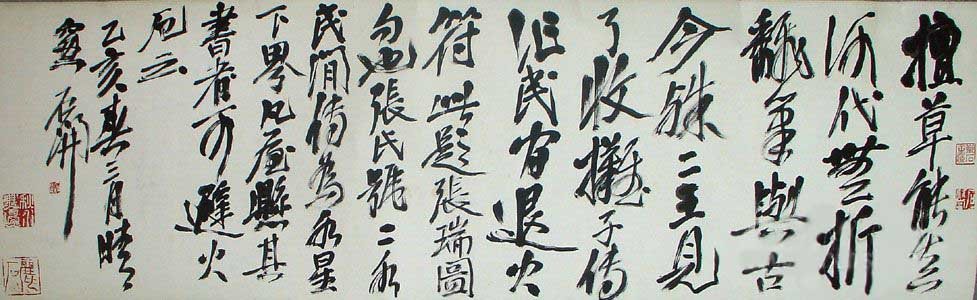 擅草能
代無折
與古
今殊二王見
了收擬子傳
民宿退火
符此題張瑞圖
句也張氏號二水
民間傳為水星
下界凡廬懸其
書者可避火
厄云
乙亥春三月晴
窗石開